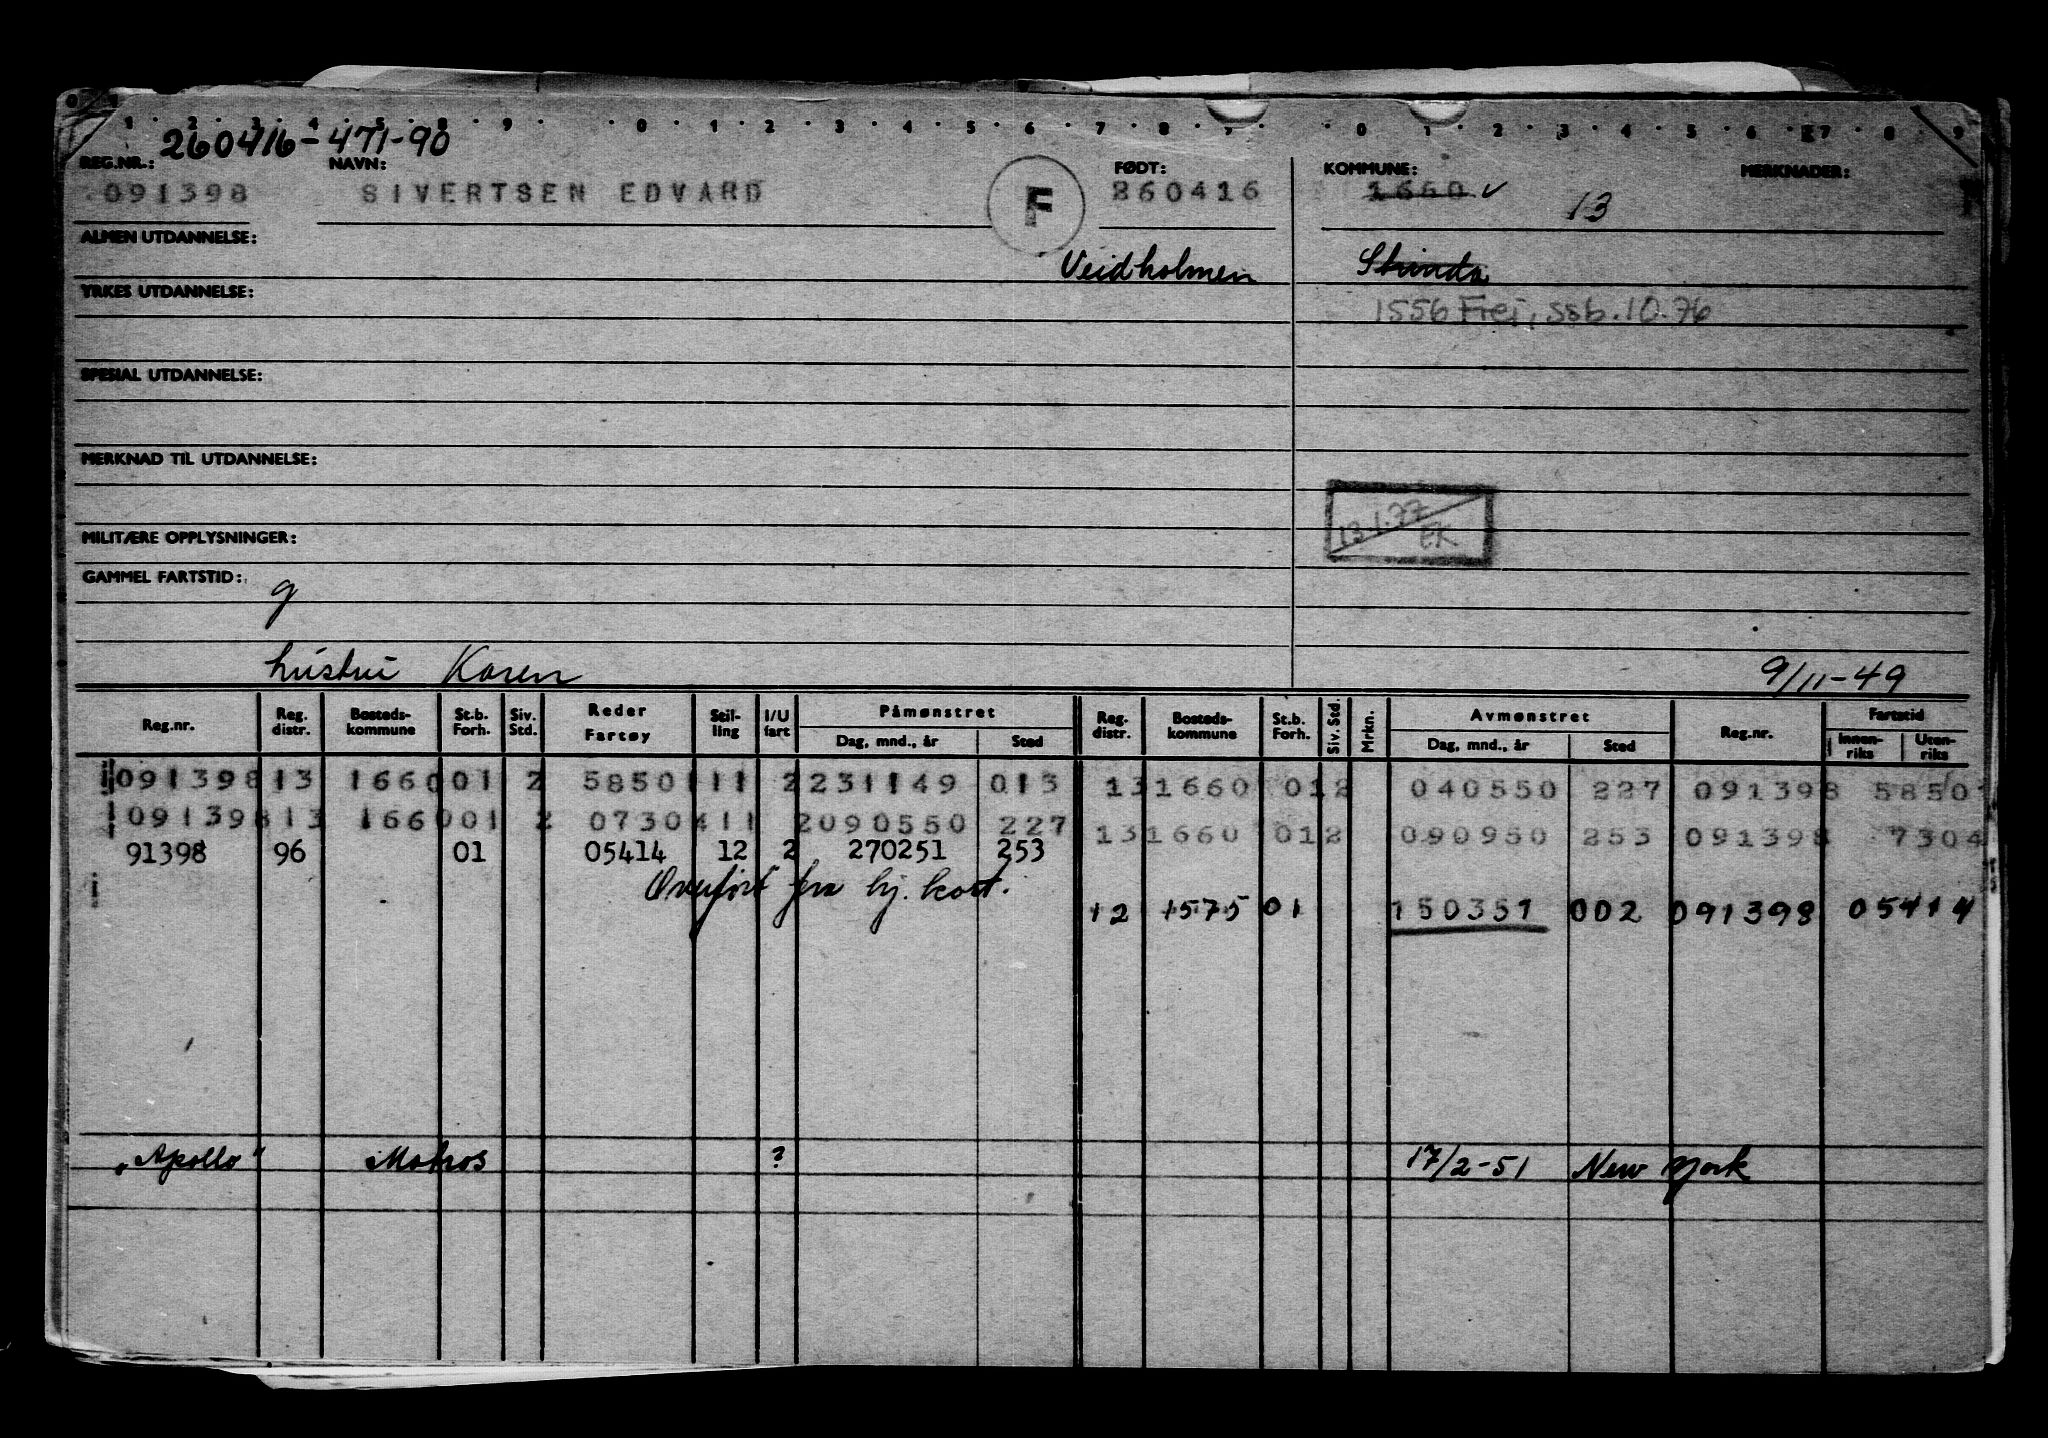 1 2 3 4 5 8 9 0 1 2 3 4 5 6 7 8 9 0 1 2 3 4 5 6 7 8 9
260416-471-90
REG.NR.: NAVN: FØDT: KOMMUNE: MERKNADER:
091398 SIVERTSEN EDVARD F 260416 1660 ✓ 13
ALMEN UTDANNELSE:
Veidholmen Strinda
YRKES UTDANNELSE:
1556 Frei, ssb. 10.76
SPESIAL UTDANNELSE:
MERKNAD TIL UTDANNELSE:
13.1.77 EK
MILITÆRE OPPLYSNINGER:
GAMMEL FARTSTID: g
hustru Karen 9/11-49
Reg.nr. Reg. distr. Bosteds-kommune St.b. Forh. Siv. Std. Reder Fartøy Stil-ling I/U fart Påmønstret Dag, mnd., år Sted Reg. distr. Bosteds-kommune St.b. Forh. Siv. Std. Mrkn. Avmønstret Dag, mnd., år Sted Reg.nr. Fartstid Innen-riks Uten-riks
091398 13 1660 01 2 58501 11 2 231149 013 13 1660 01 2 040550 227 091398 58501
091398 13 1660 01 2 07304 11 2 090550 227 13 1660 01 2 090950 253 091398 7304
91398 96 01 05414 12 2 270251 253
Overført fra hj. kort.
12 1575 01 150351 002 091398 05414
"Apollo" Matros ? 17/2-51 New York